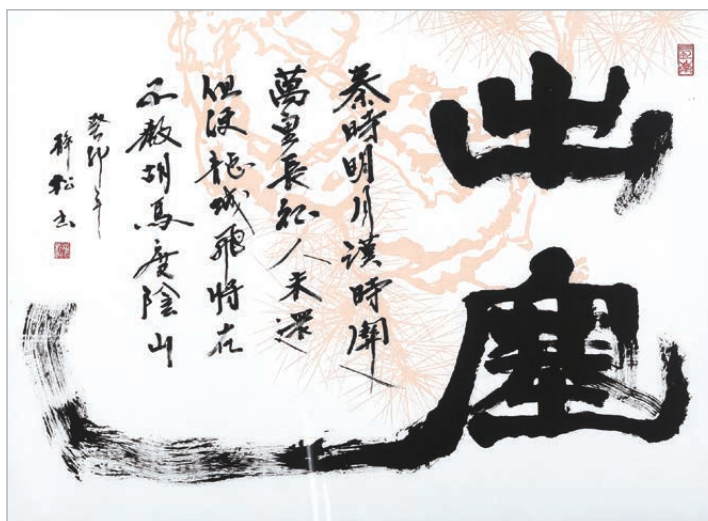 出塞
秦時明月漢時關
萬里長征人未還
但使龍城飛將在
不教胡馬度陰山
癸卯年
松书